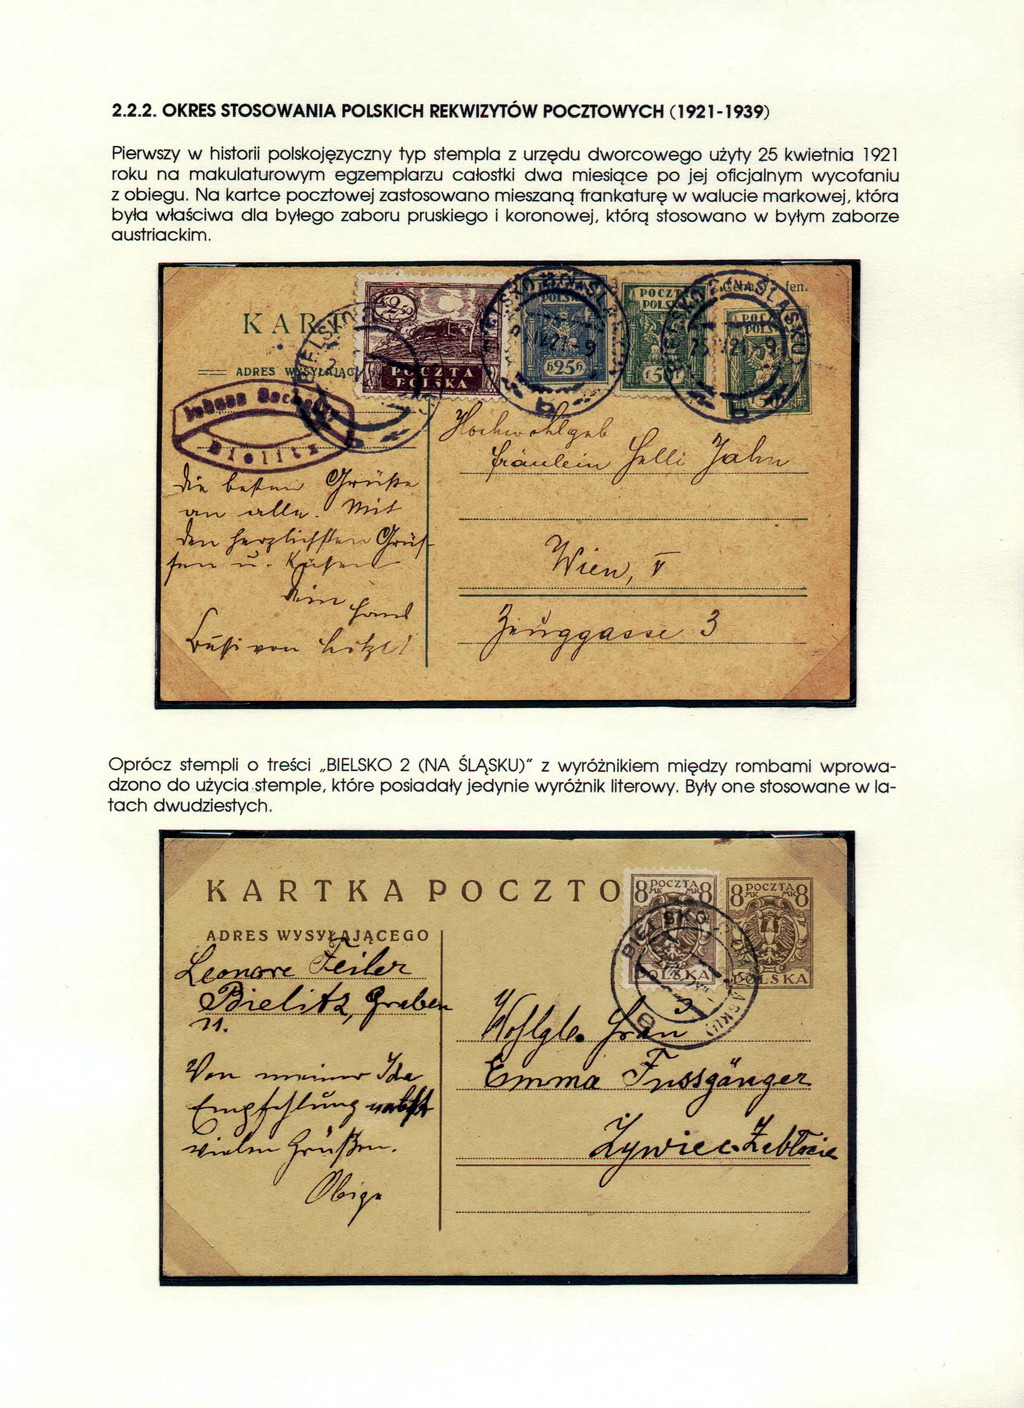 2.2.2. OKRES STOSOWANIA POLSKICH REKWIZYTÓW POCZTOWYCH (1921-1939)
Pierwszy w historii polskojęzyczny typ stempla z urzędu dworcowego użyty 25 kwietnia 1921
roku na makulaturowym egzemplarzu całostki dwa miesiące po jej oficjalnym wycofaniu
z obiegu. Na kartce pocztowej zastosowano mieszaną frankaturę w walucie markowej, która
była właściwa dla byłego zaboru pruskiego i koronowej, którą stosowano w byłym zaborze
austriackim.
ADRES WYSYŁAJĄC
POCZTA
POLSKA
Bielitz
Die besten Grüße
an alle. Mit
den herzlichsten Grüs-
sen u. Küssen
Hochwohlgeb
Fräulein Helli Jahn
Wien, V
Zeuggasse 3
Oprócz stempli o treści „BIELSKO 2 (NA ŚLĄSKU)” z wyróżnikiem między rombami wprowa-
dzono do użycia stemple, które posiadały jedynie wyróżnik literowy. Były one stosowane w la-
tach dwudziestych.
KARTKA POCZTO
8 POCZTA 8
MK MK
POLSKA
8 POCZTA 8
MK MK
POLSKA
BIELSKO
ADRES WYSYŁAJĄCEGO
Leonore Feiler
Bielitz, Graben
11.
Von meiner Ida
Empfehlung nebst
vielen Grüßen.
Obige
Frau
Emma Fussgänger
Żywiec-Zabłocie